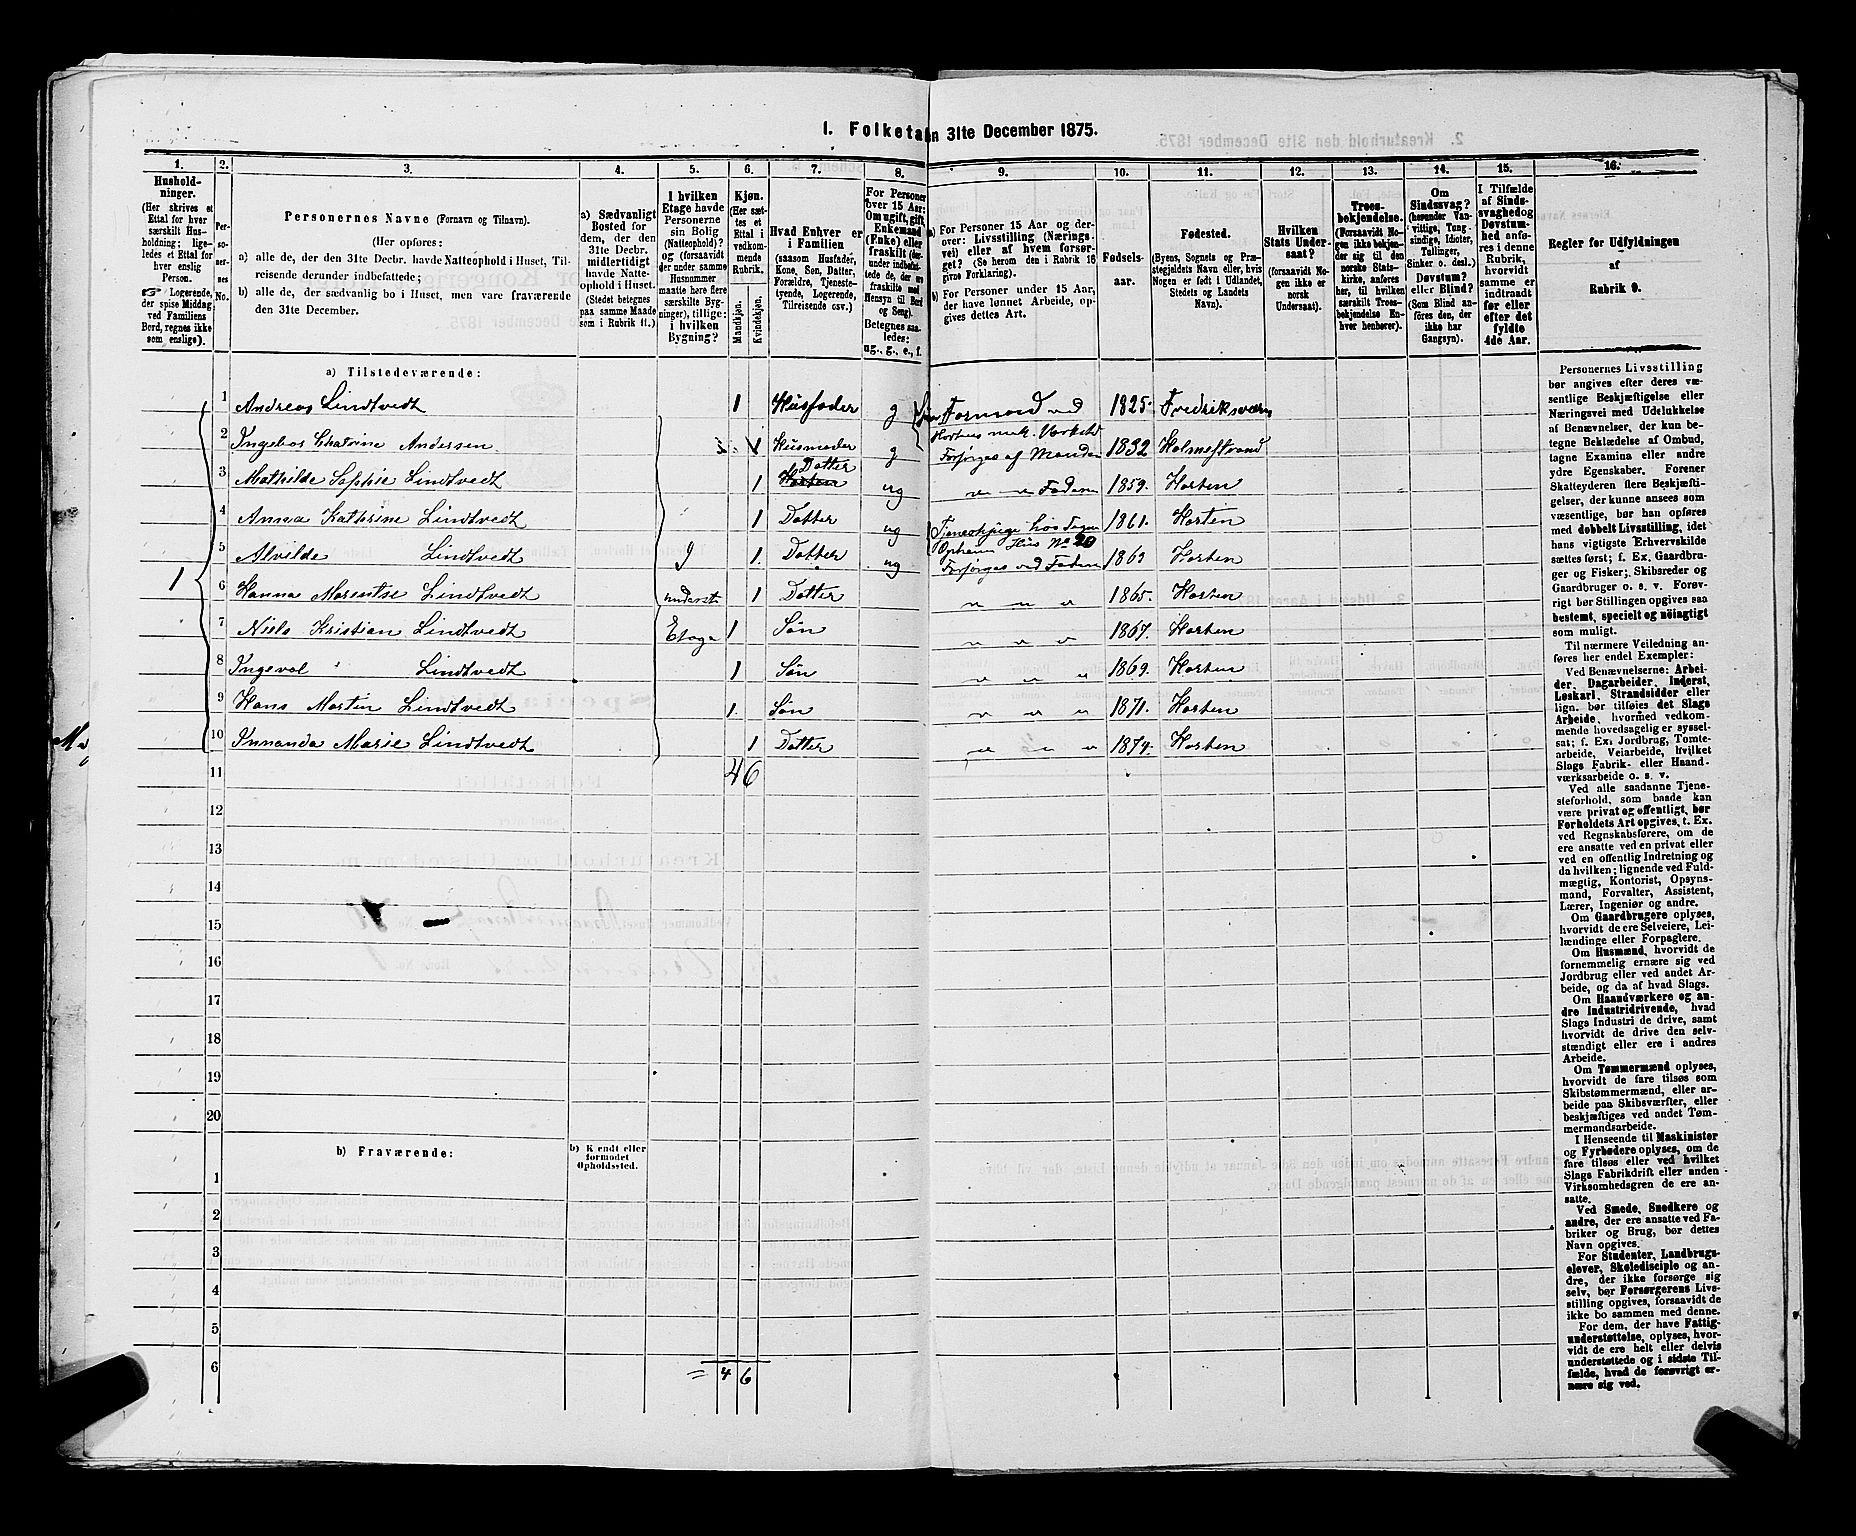 1. Folketa n 31te December 1875.
1. 2. 3. 4. 5. 6. 7. 8. 9. 10. 11. 12. 13. 14. 15. 16.
Hushold-
ninger.
(Her skrives et
Ettal for hver
særskilt Hus-
holdning; lige-
ledes et Ettal for
hver enslig
Person.
Logerende,
der spise Middag
ved Familiens
Bord, regnes ikke
som enslige).
Per-
so-
ner-
nes
No.
Personernes Navne (Fornavn og Tilnavn).
(Her opføres:
a) alle de, der den 31te Decbr. havde Natteophold i Huset, Til-
reisende derunder indbefattede;
b) alle de, der sædvanlig bo i Huset, men vare fraværende
den 31te December.
a) Sædvanligt
Bosted for
dem, der den
31te Decbr.
midlertidigt
havde Natte-
ophold i Huset.
(Stedet betegnes
paa samme Maade
som i Rubrik 11.)
I hvilken
Etage havde
Personerne
sin Bolig
(Natteophold)?
og (forsaavidt
der under samme
Husnommer
maatte høre flere
særskilte Byg-
ninger), tillige:
i hvilken
Bygning?
Kjøn.
(Her sæt-
tes et
Ettal i
vedkom-
mende
Rubrik.
Mandkjøn.
Kvindekjøn.
Hvad Enhver er
i Familien
(saasom Husfader,
Kone, Søn, Datter,
Forældre, Tjeneste-
tyende, Logerende,
Tilreisende osv.)
For Personer
over 15 Aar:
Om ugift, gift
Enkemand
(Enke) eller
fraskilt (her-
under indbefat-
tede de, der ere
fraskilte med
Hensyn til Bord
og Seng).
Betegnes saa-
ledes:
ug., g., e., f.
a) For Personer 15 Aar og der-
over: Livsstilling (Nærings-
vei) eller af hvem forsør-
get? (Se herom den i Rubrik 16
givne Forklaring).
b) For Personer under 15 Aar,
der have lønnet Arbeide, op-
gives dettes Art.
Fødsels-
aar.
Fødested.
(Byens, Sognets og Præ-
stegjeldets Navn eller, hvis
Nogen er født i Udlandet,
Stedets og Landets
Navn).
Hvilken
Stats Under-
saat?
(forsaavidt No-
gen ikke er
norsk
Undersaat).
Troes-
bekjendelse.
(Forsaavidt No-
gen ikke bekjen-
der sig til den
norske Stats-
kirke, anføres
her, til hvilken
særskilt Troes-
bekjendelse En-
hver henhører).
Om
Sindssvag?
(herunder Van-
vittige, Tung-
sindige, Idioter,
Tullinger,
Sinker o. desl.)
Døvstum?
eller Blind?
(Som Blind an-
føres den, der
ikke har
Gangsyn).
I Tilfælde
af Sinds-
svaghed og
Døvstum-
hed anfø-
res i denne
Rubrik,
hvorvidt
samme er
indtraadt
før eller
efter det
fyldte
4de Aar.
Regler for Udfyldningen
af
Rubrik 9.
a) Tilstedeværende:
1 Andreas Lindtvedt 1 Husfader g Formand ved 1825. Fredriksværn
Hortens mek. Værksted
2 Ingebor Chatrine Andersen 1 Husmoder g Forsørges af Manden 1832 Holmestrand
3 Mathilde Sophie Lindtvedt 1 Datter ug " " Faderen 1859. Horten
4 Anna Kathrine Lindtvedt 1 Datter ug Tjenestepige hos 1861. Horten
Hus No 20
5 Alvilde Lindtvedt 1 Datter ug Forsørges ved Faderen 1863 Horten
1
6 Hanna Marentse Lindtvedt underste 1 Datter " " " 1865. Horten
7 Niels Kristian Lindtvedt Etage 1 Søn " " " 1867. Horten
8 Ingevol Lindtvedt 1 Søn " " " 1869. Horten
9 Hans Martin Lindtvedt 1. Søn " " " 1871. Horten
10 Innanda Marie Lindtvedt 1 Datter " " " 1874. Horten
11 4 6
12
13
14
15
16
17
18
19
20
b) Fraværende:
b) Kjendt eller
formodet
Opholdssted.
1
2
3
4
5
6 = 4 6
Personernes Livsstilling
bør angives efter deres væ-
sentlige Beskjæftigelse eller
Næringsvei med Udelukkelse
af Benævnelser, der kun be-
tegne Beklædelse af Ombud,
tagne Examina eller andre
ydre Egenskaber. Forener
Skatteyderen flere Beskjæfti-
gelser, der kunne ansees som
væsentlige, bør han opføres
med dobbelt Livsstilling, idet
hans vigtigste Erhvervskilde
sættes først; f. Ex. Gaardbru-
ger og Fisker; Skibsreder og
Gaardbruger o. s. v. Forøv-
rigt bør Stillingen opgives saa
bestemt, specielt og nöiagtigt
som muligt.
Til nærmere Veiledning an-
føres her endel Exempler:
Ved Benævnelserne: Arbei-
der, Dagarbeider, Inderst,
Løskarl, Strandsidder eller
lign. bør tilføies det Slags
Arbeide, hvormed vedkom-
mende hovedsagelig er syssel-
sat; f. Ex: Jordbrug, Tomte-
arbeide, Veiarbeide, hvilket
Slags Fabrik- eller Haand-
værksarbeide o. s. v.
Ved alle saadanne Tjene-
steforhold, som baade kan
være privat og offentligt, bør
Forholdets Art opgives, t. Ex.
ved Regnskabsførere, om de
ere ansatte ved en privat eller
ved en offentlig Indretning og
da hvilken; lignende ved Fuld-
mægtig, Kontorist, Opsyns-
mand, Forvalter, Assistent,
Lærer, Ingeniør og andre.
Om Gaardbrugere oplyses,
hvorvidt de ere Selveiere, Lei-
lændinge eller Forpagtere.
Om Husmænd, hvorvidt de
fornemmelig ernære sig ved
Jordbrug eller ved andet Ar-
beide, og da af hvad Slags.
Om Haandværkere og an-
dre Industridrivende, hvad
Slags Industri de drive, samt
hvorvidt de drive den selv-
stændigt eller ere i andres
Arbeide.
Om Tømmermænd oplyses,
hvorvidt de fare tilsøs som
Skibstømmermænd, eller ar-
beide paa Skibsværfter, eller
beskjæftiges ved andet Tøm-
mermandsarbeide.
I Henseende til Maskinister
og Fyrbødere oplyses, om de
fare tilsøs eller ved hvilket
Slags Fabrikdrift eller anden
Virksomhedsgren de ere an-
satte.
Ved Smede, Snedkere og
andre, der ere ansatte ved Fa-
briker og Brug, bør dettes
Navn opgives.
For Studenter, Landbrugs-
elever, Skoledisciple og an-
dre, der ikke forsørge sig
selv, bør Forsørgerens Livs-
stilling opgives, forsaavidt de
ikke bo sammen med denne.
For dem, der have Fattig-
understøttelse, oplyses, hvor-
vidt de ere helt eller delvis
understøttede og i sidste Til-
fælde, hvad de forøvrigt er-
nære sig ved.